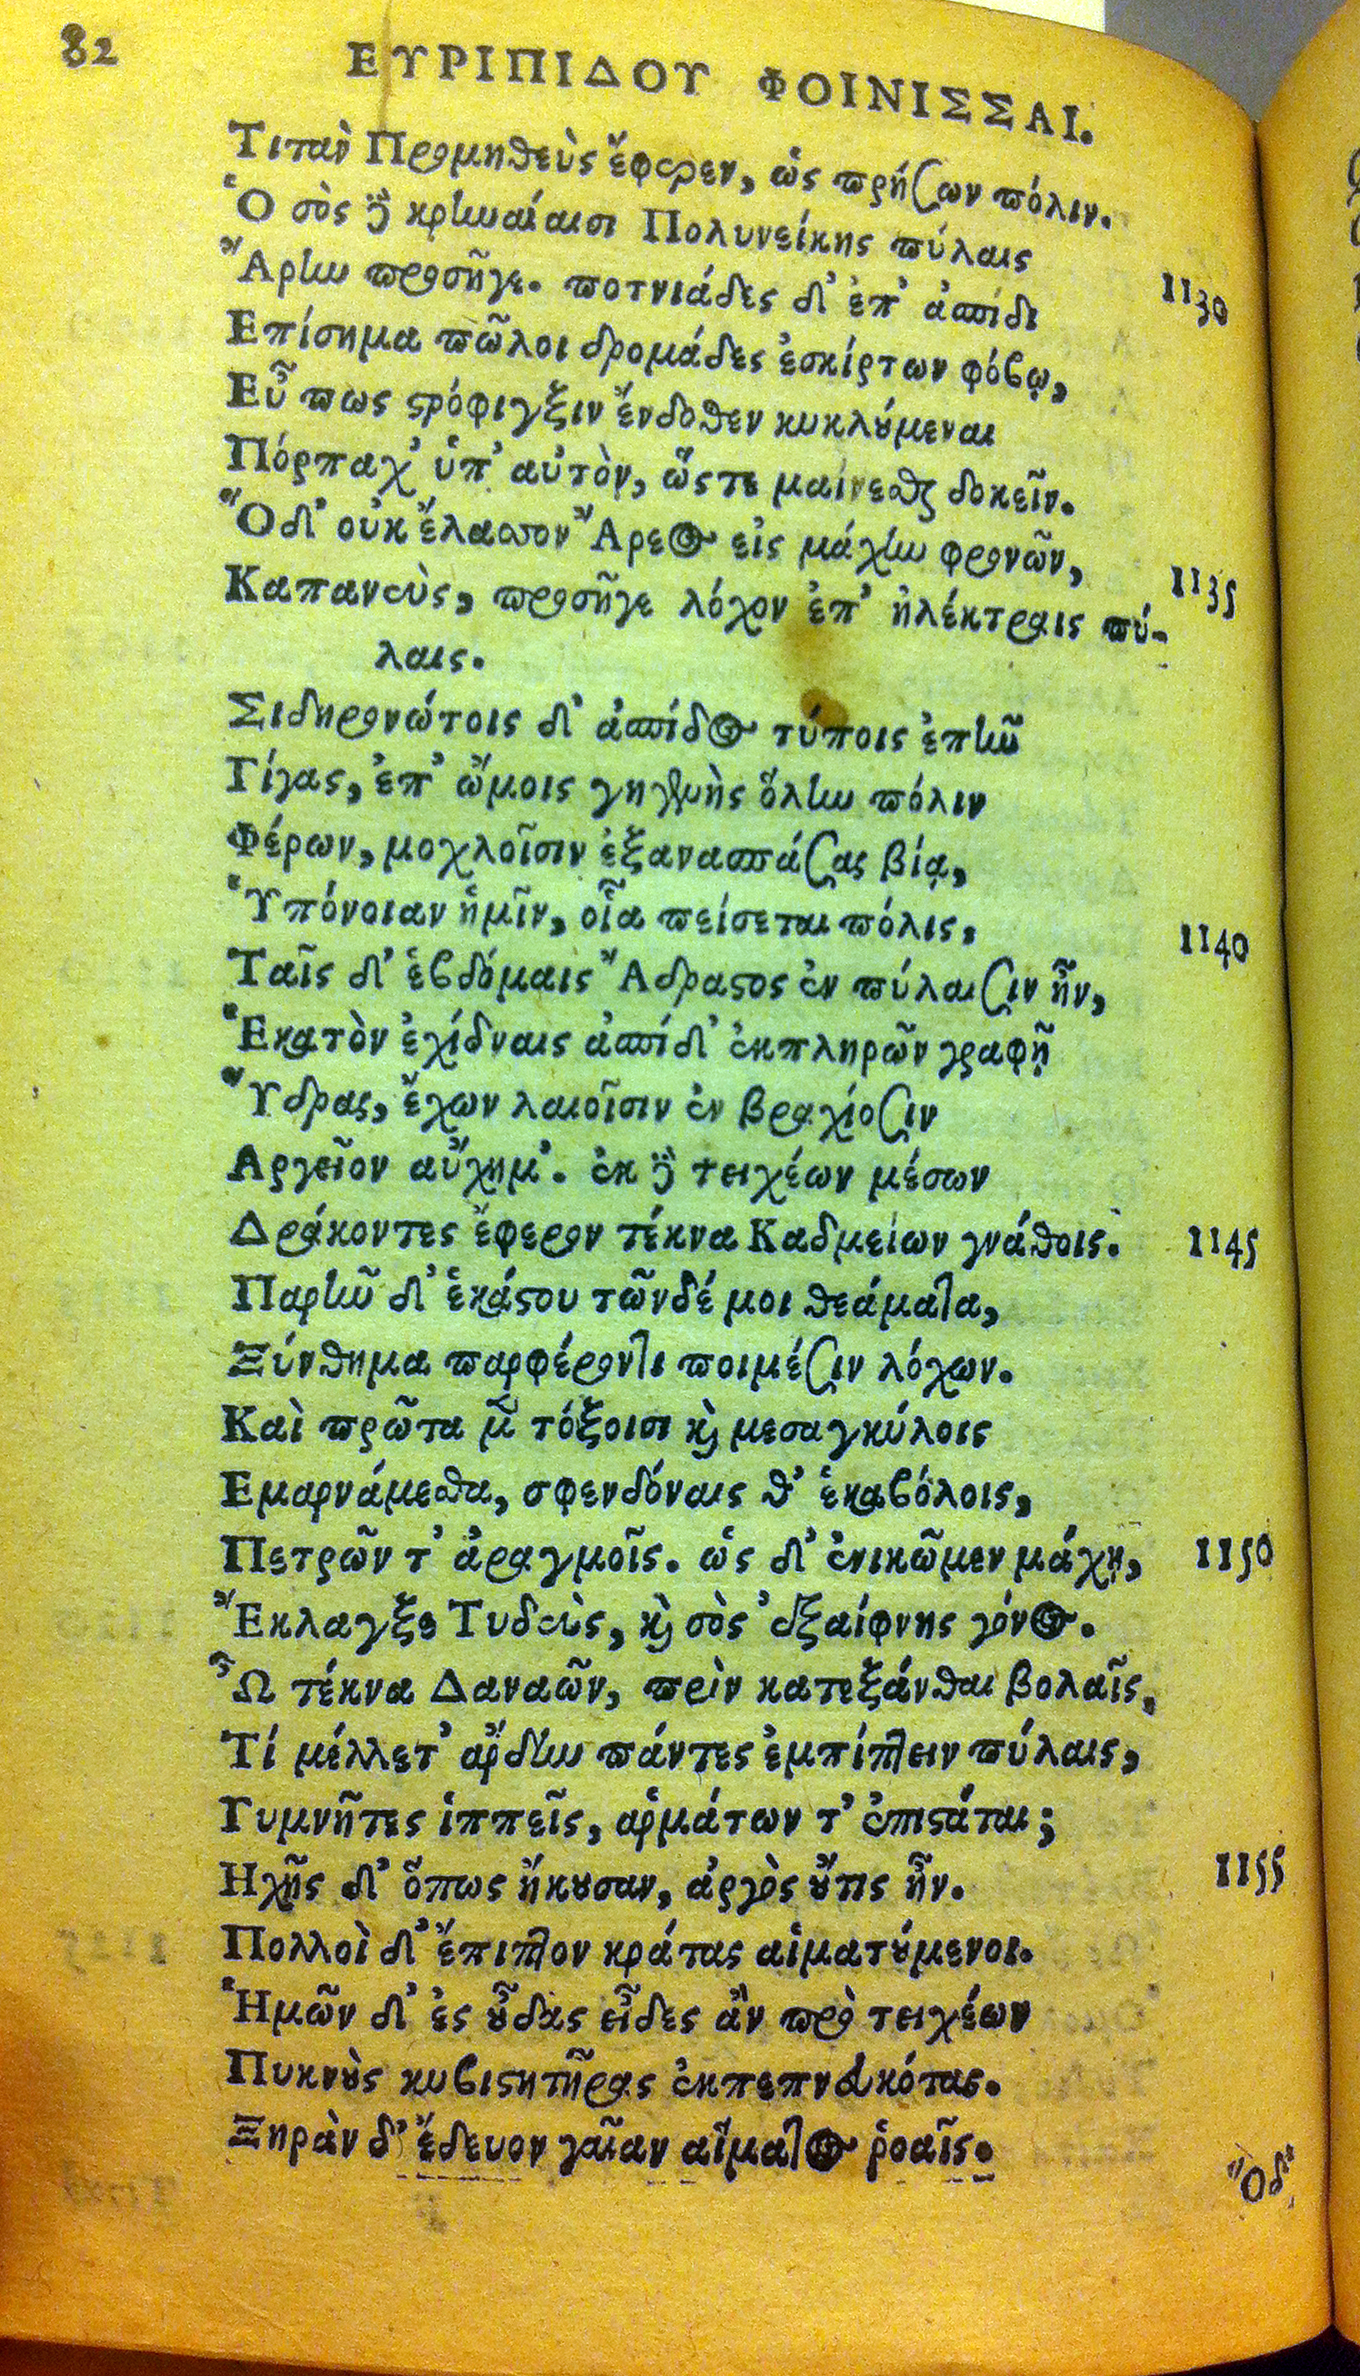 82
ΕΥΡΙΠΙΔΟΥ ΦΟΙΝΙΣΣΑΙ.
Τιτὰν Προμηθεὺς ἔφερεν, ὡς πρήσων πόλιν.
Ὁ σὸς δὲ κρηναίαισι Πολυνείκης πύλαις
Ἄρην προσῆγε. ποτνιάδες δ' ἐπ' ἀσπίδι
1130
Επίσημα πῶλοι δρομάδες ἐσκίρτων φόβῳ,
Εὖ πως στρόφιγξιν ἔνδοθεν κυκλούμεναι
Πόρπαχ' ὑπ' αὐτὸν, ὥστε μαίνεσθαι δοκεῖν.
Ὁ δ' οὐκ ἔλασσον Ἄρεος εἰς μάχην φρονῶν,
1135
Καπανεὺς, προσῆγε λόχον ἐπ' ἠλέκτραις πύ-
λαις.
Σιδηρονώτοις δ' ἀσπίδος τύποις ἐπῆν
Γίγας, ἐπ' ὤμοις γηγενὴς ὅλην πόλιν
Φέρων, μοχλοῖσιν ἐξανασπάσας βίᾳ,
Ὑπόνοιαν ἡμῖν, οἷα πείσεται πόλις.
1140
Ταῖς δ' ἑβδόμαις Ἄδραστος ἐν πύλαισιν ἦν,
Ἑκατὸν ἐχίδναις ἀσπίδ' ἐκπληρῶν γραφῇ
Ὕδρας, ἔχων λαιοῖσιν ἐν βραχίοσιν
Αργεῖον αὔχημ'. ἐκ δὲ τειχέων μέσων
Δράκοντες ἔφερον τέκνα Καδμείων γνάθοις.
1145
Παρῆν δ' ἑκάστου τῶνδέ μοι θεάματα,
Ξύνθημα παρφέροντι ποιμέσιν λόχων.
Καὶ πρῶτα μὲν τόξοισι καὶ μεσαγκύλοις
Εμαρνάμεσθα, σφενδόναις θ' ἑκαβόλοις,
Πετρῶν τ' ἀραγμοῖς. ὡς δ' ἐνικῶμεν μάχῃ,
1150
Ἔκλαγξε Τυδεὺς, καὶ σὸς ἐξαίφνης γόνος.
Ὦ τέκνα Δαναῶν, πρὶν κατεξάνθαι βολαῖς,
Τί μέλλετ' ἄρδην πάντες ἐμπίπτειν πύλαις,
Γυμνῆτες ἱππεῖς, ἁρμάτων τ' ἐπιστάται;
Ηχῆς δ' ὅπως ἤκουσαν, ἀργὸς οὔτις ἦν.
1155
Πολλοὶ δ' ἔπιπτον κράτας αἱματούμενοι.
Ἡμῶν δ' ἐς οὖδας εἶδες ἂν πρὸ τειχέων
Πυκνοὺς κυβιστητῆρας ἐκπεπνευκότας.
Ξηρὰν δ' ἔδευον γαῖαν αἵματος ῥοαῖς.
Ὁ δ'